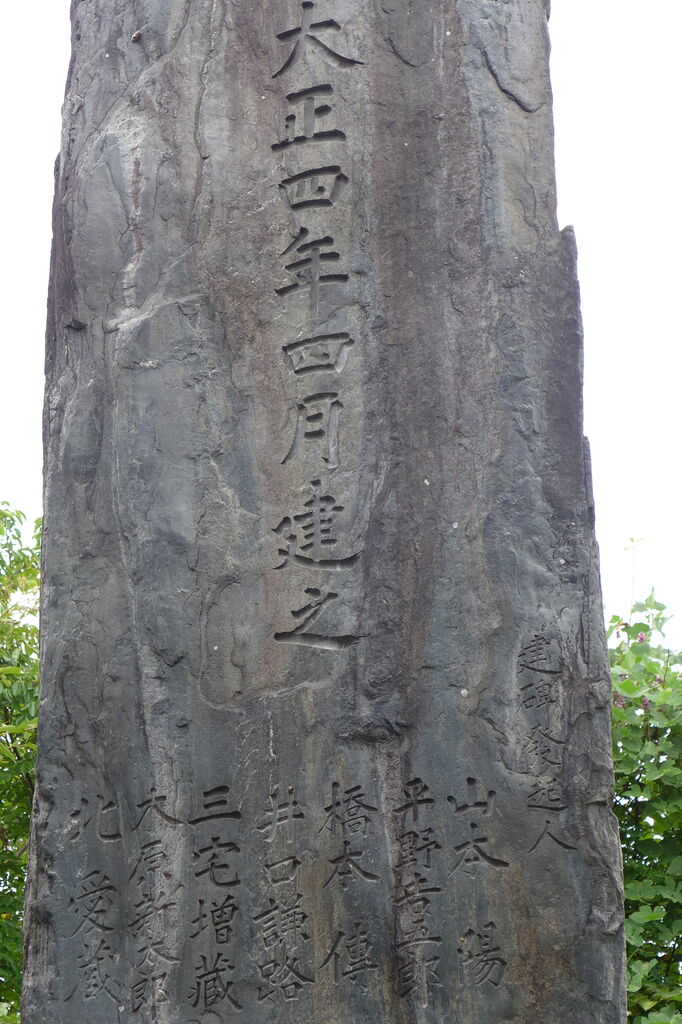 大正四年四月建之
建碑發起人
山本陽
平野吉五郎
橋本傳
井口謙路
三宅増藏
大原新太郎
北愛藏